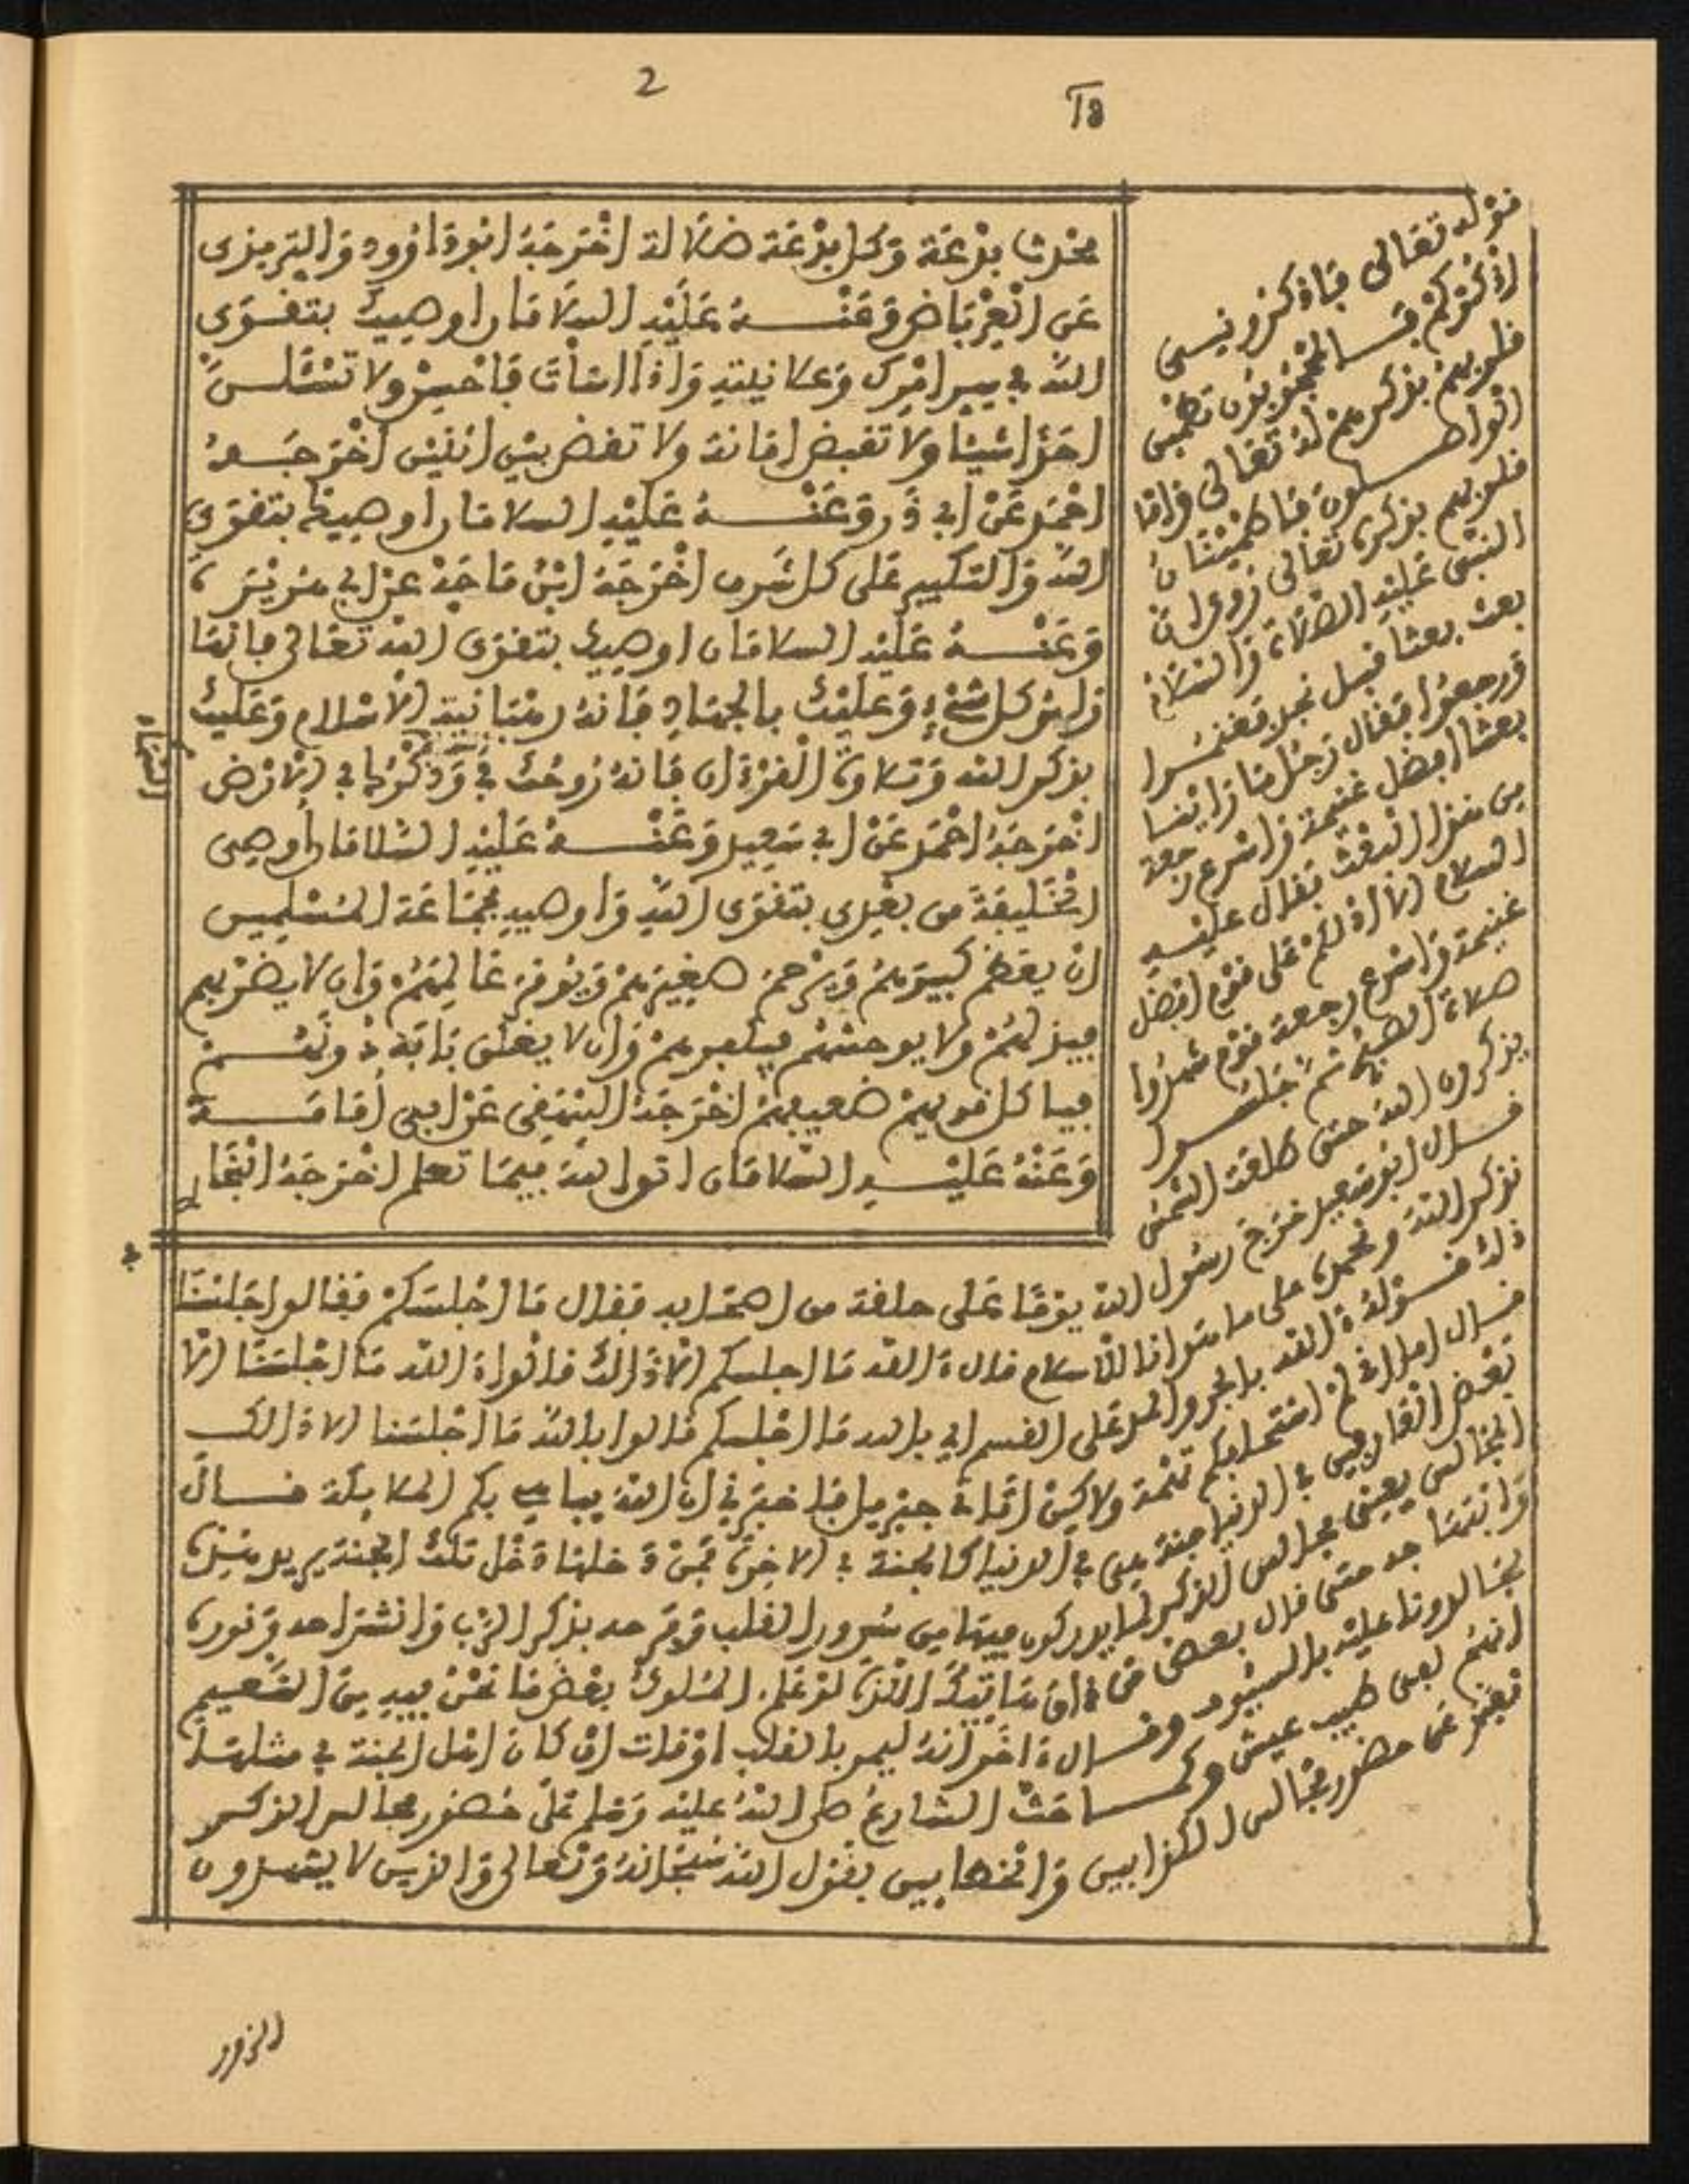 2
18
محدثة بدعة وكل بدعة ضلالة اخرجه ابو داوود والترمذى
عن العرباض وعنه عليه السلام قال اوصيك بتقوى
الله في سر امرك وعلانيته واذا اسأت فاحسن ولا تسئلن
احدا شيئا ولا تقبض امانة ولا تقض بين اثنين اخرجه
احمد عن ابي ذر وعنه عليه السلام قال اوصيك بتقوى
الله والتكبير على كل شرف اخرجه ابن ماجه عن ابي هريرة
وعنه عليه السلام قال اوصيك بتقوى الله تعالى فانها
رأس كل شيء وعليك بالجهاد فانه رهبانية الاسلام وعليك
بذكر الله وتلاوة القرءان فانه روحك في وذكرك في الارض
السماء
اخرجه احمد عن ابي سعيد وعنه عليه السلام قال أوصى
الخليفة من بعدى بتقوى الله واوصيه بجماعة المسلمين
ان يعظم كبيرهم ويرحم صغيرهم ويوقر عالمهم وان لا يضربهم
فيذلهم ولا يوحشهم فيكفرهم وان لا يغلق بابه دونهم
فياكل قويهم ضعيفهم اخرجه البيهقى عن ابى أمامة
وعنه عليه السلام قال اتق الله فيما تعلم اخرجه البخا
قوله تعالى فاذكرونى
اذكركم قال المحجوبون تطمئن
قلوبهم بذكرهم له تعالى واما
الواصلون فاطمئنان
قلوبهم بذكره تعالى روى ان
النبى عليه الصلاة والسلام
بعث بعثا قبل نجد فغنموا
ورجعوا فقال رجل ما راينا
بعثا افضل غنيمة واسرع رجعة
من هذا البعث فقال عليه
السلام الا ادلكم على قوم افضل
غنيمة واسرع رجعة قوم شهدوا
صلاة الصبح ثم جلسوا
يذكرون الله حتى طلعت الشمس
قال ابو سعيد خرج رسول الله يوما على حلقة من اصحابه فقال ما اجلسكم فقالوا جلسنا
نذكر الله ونحمده على ما هدانا للاسلام قال ءالله ما اجلسكم الا ذالك قالوا ءالله ما اجلسنا الا
ذلك قوله ءالله بالجر والمد على القسم اي بالله ما اجلسكم قالوا بالله ما اجلسنا الا ذالك
قال اما انى لم استحلفكم تهمة ولاكن اتانى جبريل فاخبرنى ان الله يباهى بكم الملائكة قال
بعض العارفين فى الدنيا جنة هى في الدنيا كالجنة فى الاخرة فمن دخلها دخل تلك الجنة يريد هذه
المجالس يعنى مجالس الذكر لما يدركون فيها من سرور القلب وفرحه بذكر الرب وانشراحه ونوره
وابتهاجه حتى قال بعض من ذاق هاتيك اللذة لو علم الملوك بعض ما نحن فيه من النعيم
لجالدونا عليه بالسيوف وقال ءاخر انه ليمر بالقلب اوقات ان كان اهل الجنة في مثلها
انهم لفى طيب عيش وكما حث الشارع صلى الله عليه وسلم على حضور مجالس الذكر
نفر عن حضور مجالس الكذابين والخطابين بقول الله سبحانه وتعالى والذين لا يشهدون
الزور